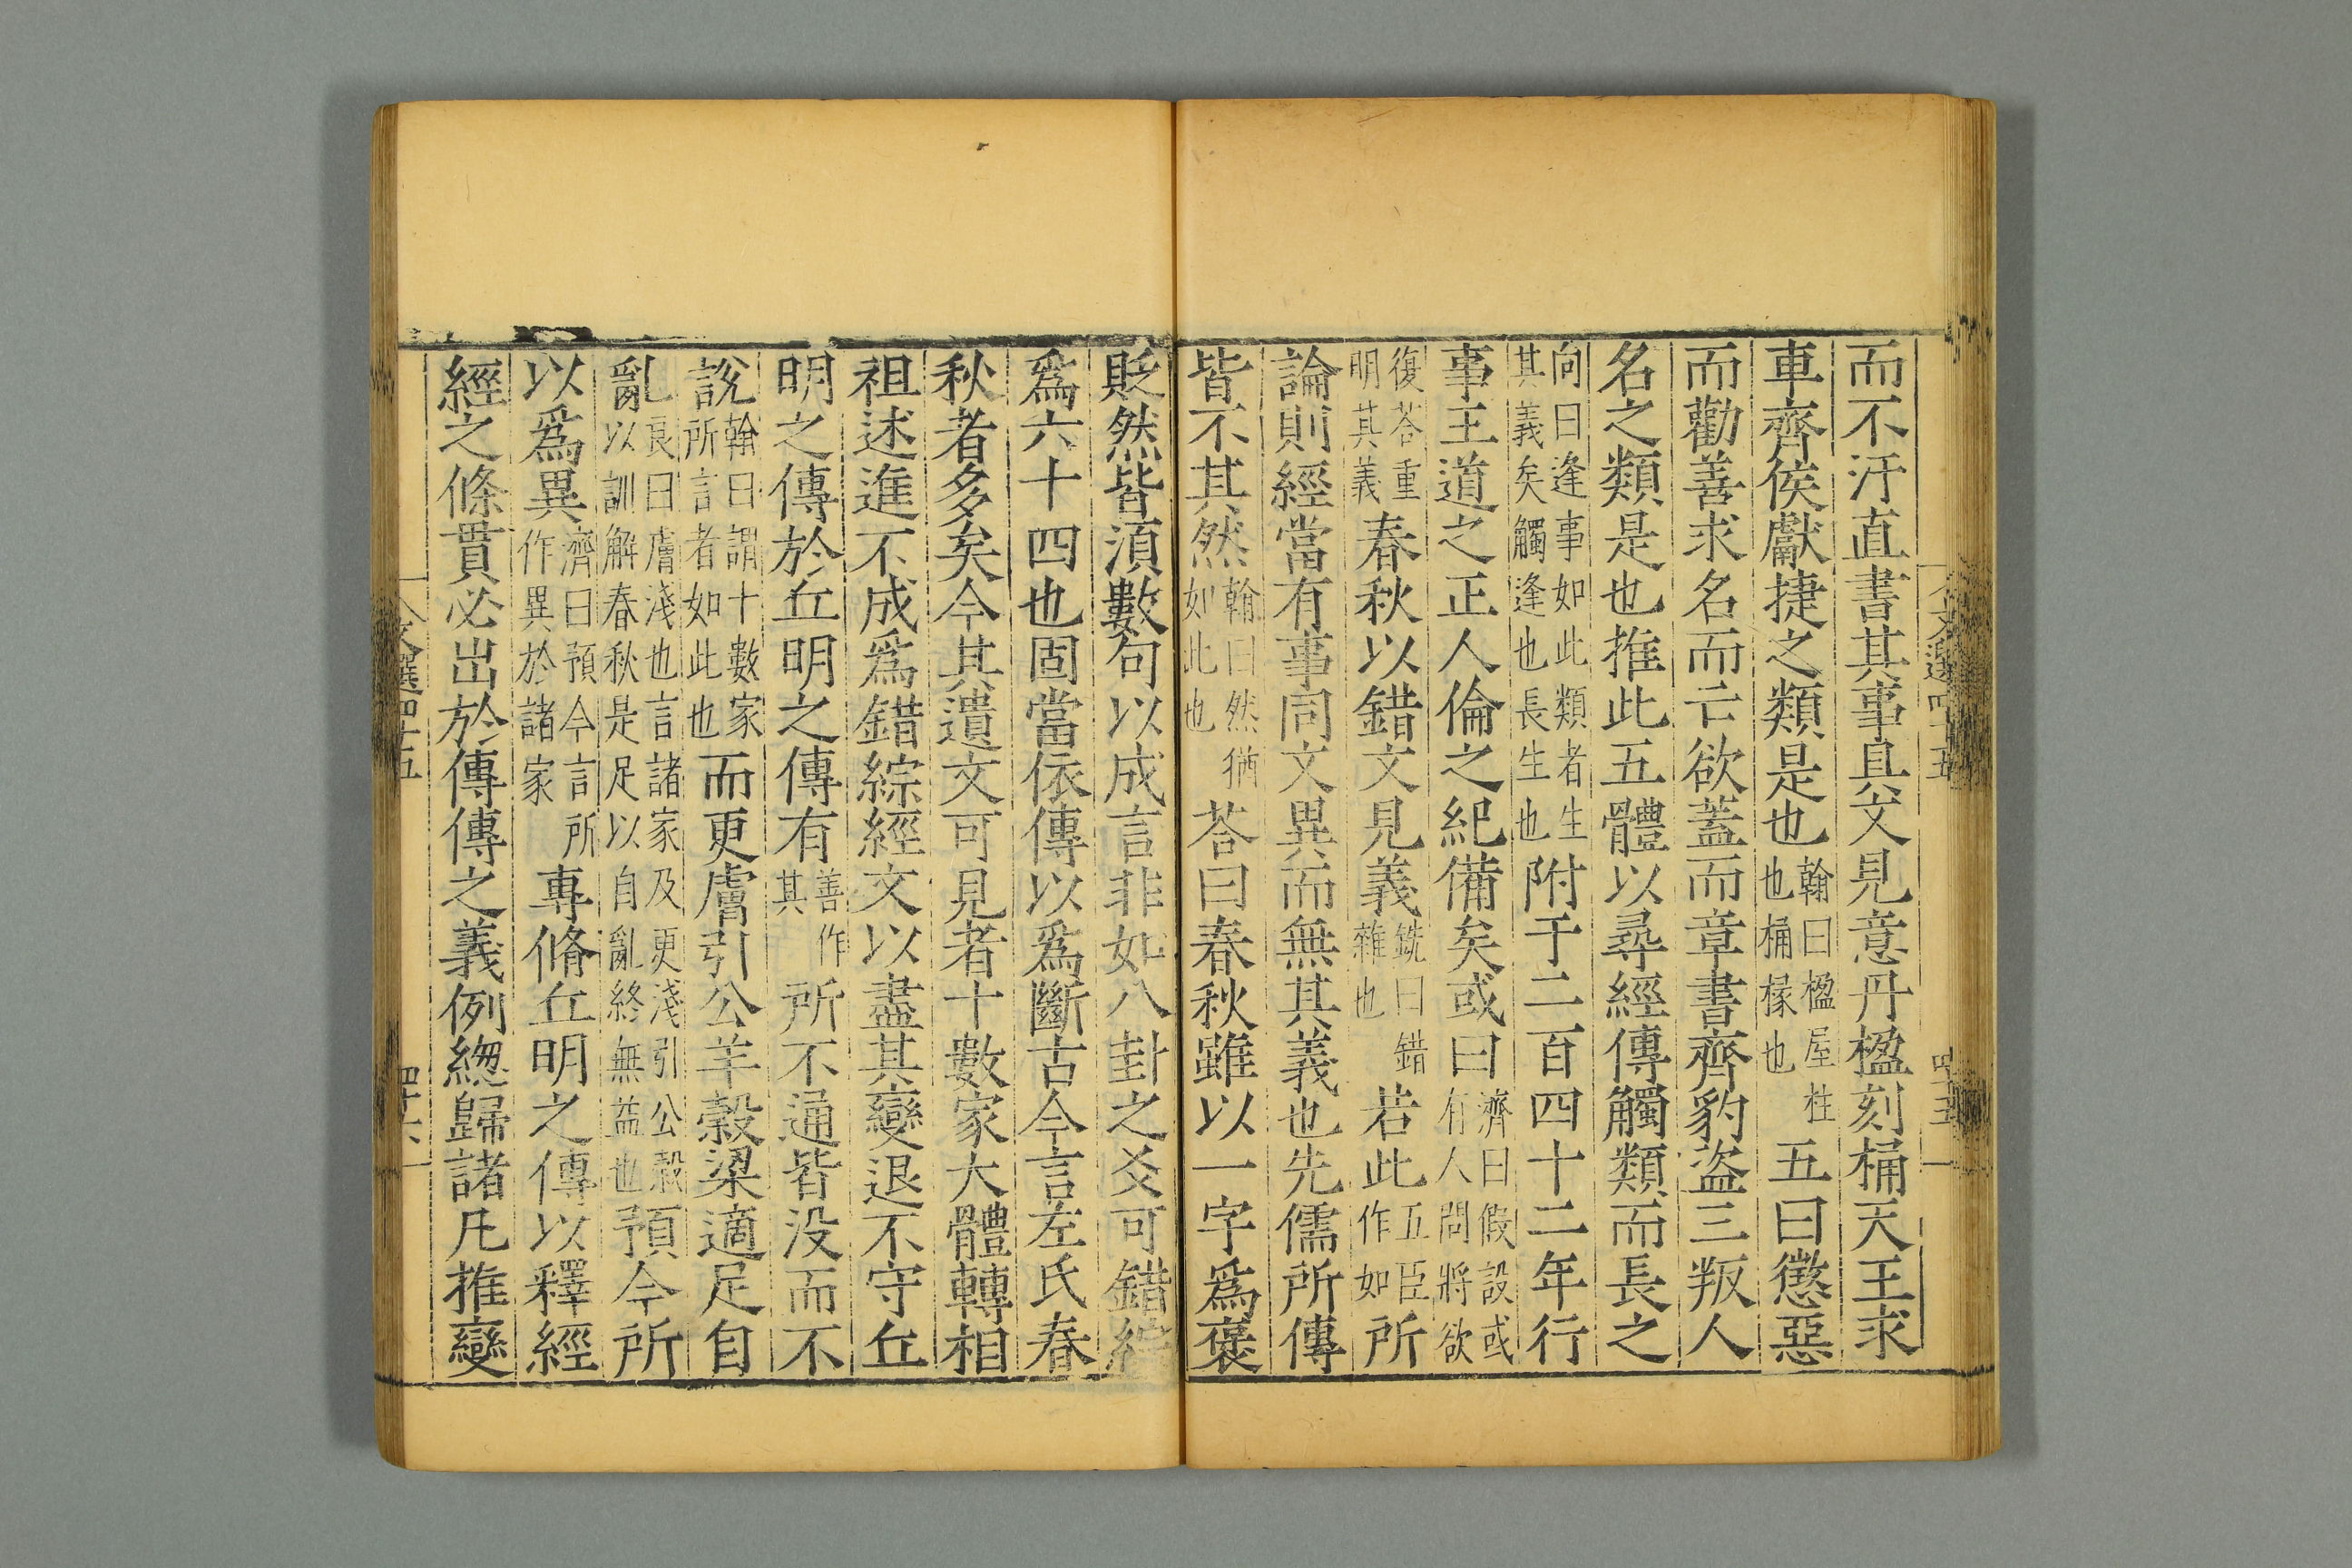 而不汙直書其事具文見意丹楹刻桷天王求
車齊侯獻捷之類是也翰曰楹屋柱也桷椽也五曰懲惡
而勸善求名而亡欲蓋而章書齊豹盜三叛人
名之類是也推此五體以尋經傳觸類而長之
向曰逢事如此類者生其義矣觸逢也長生也附于二百四十二年行
事王道之正人倫之紀備矣或曰濟曰假設或有人問將欲
復荅重明其義春秋以錯文見義銑曰錯雜也若此五臣作如所
論則經當有事同文異而無其義也先儒所傳
皆不其然翰曰然猶如此也荅曰春秋雖以一字爲褒
貶然皆湏數句以成言非如八卦之爻可錯綜
爲六十四也固當依傳以爲斷古今言左氏春
秋者多矣今其遺文可見者十數家大體轉相
祖述進不成爲錯綜經文以盡其變退不守丘
明之傳於丘明之傳有善作其所不通皆没而不
說翰曰謂十數家所言者如此也而更膚引公羊穀梁適足自
亂良曰膚淺也言諸家及更淺引公穀以訓解春秋是足以自亂終無益也預今所
以爲異濟曰預今言所作異於諸家專脩丘明之傳以釋經
經之條貫必出於傳傳之義例緫歸諸凡推變
文選四十五
四十五
文選四十五
四十六